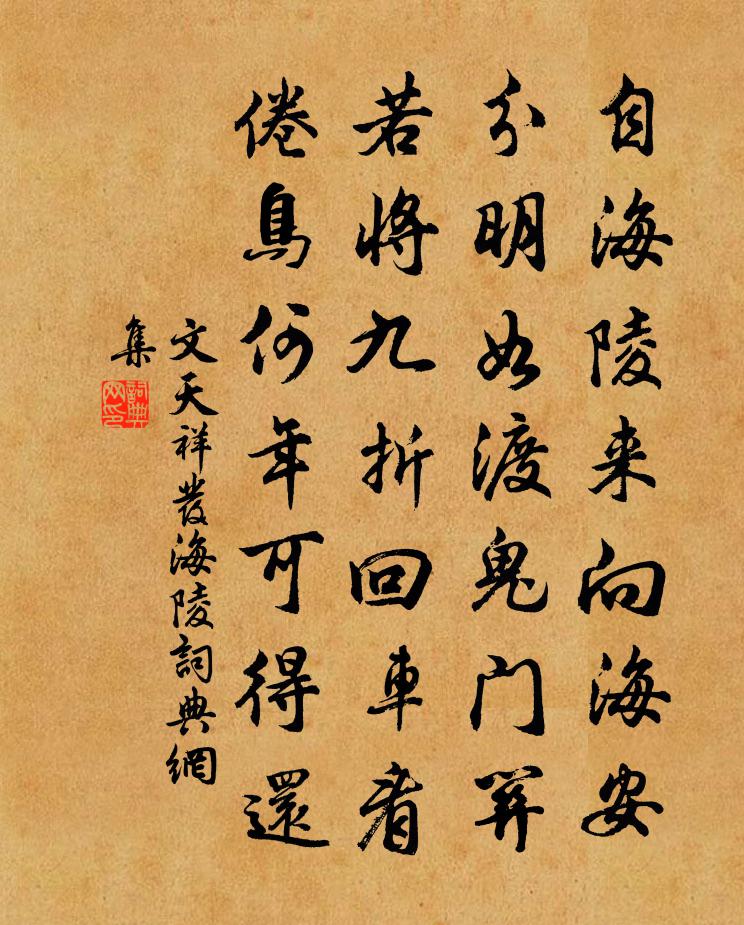 自海陵来向海安
分明如渡鬼门關
若將九折回車看
倦鳥何年可得還
文天祥發海陵詞典網
集
詞典网印